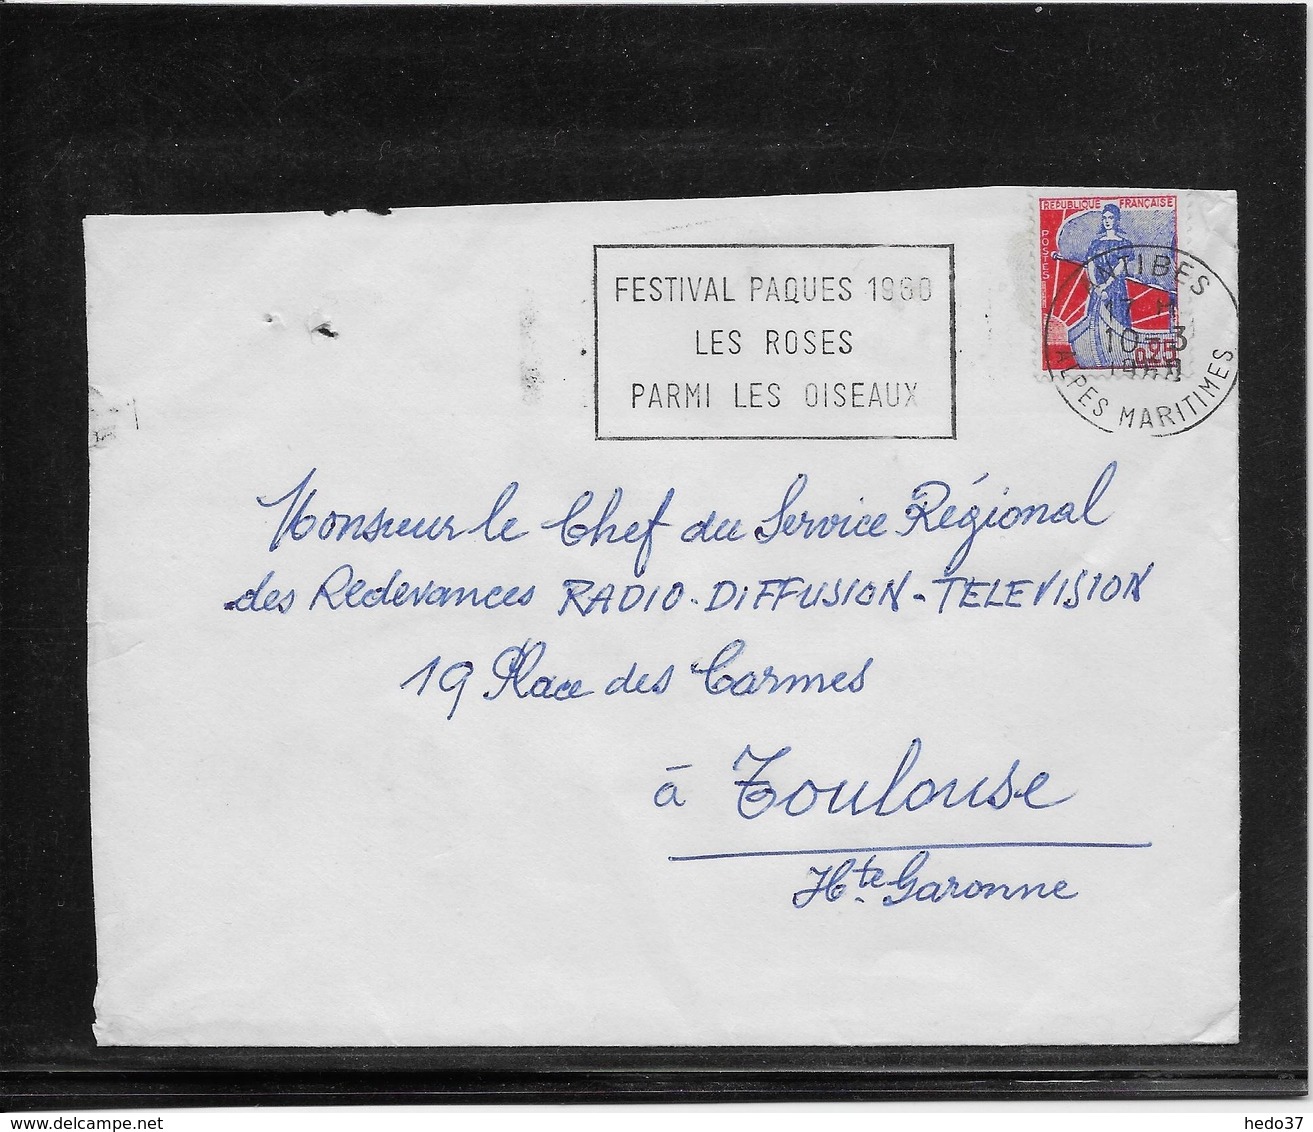 RÉPUBLIQUE FRANÇAISE
POSTES
0,25
FESTIVAL PAQUES 1960
LES ROSES
PARMI LES OISEAUX
ANTIBES
17 H
10-3
ALPES MARITIMES
Monsieur le Chef du Service Régional
des Redevances RADIO-DIFFUSION-TELEVISION
19 Place des Carmes
à Toulouse
Hte. Garonne
www.delcampe.net
hedo37